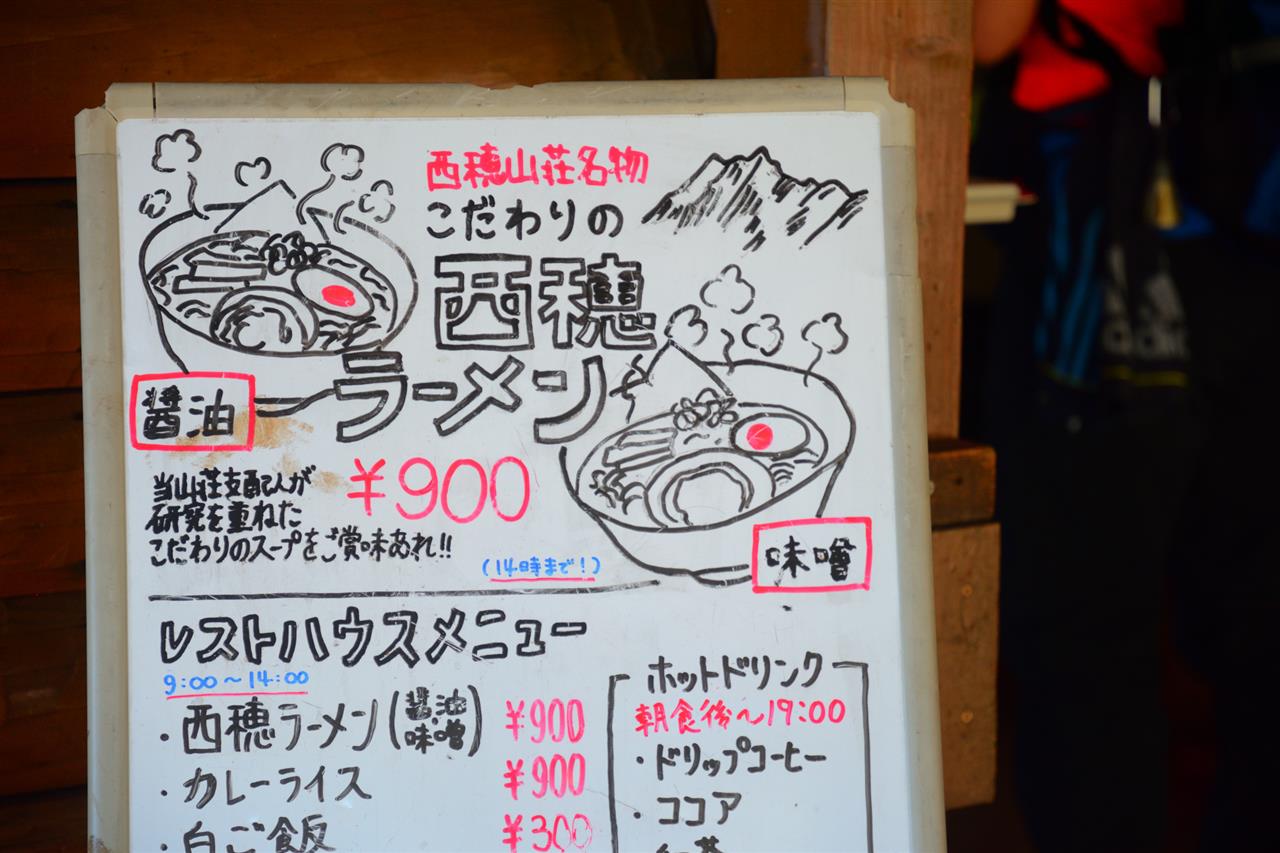 西穂山荘名物
こだわりの
西穂
ラーメン
醤油
¥900
当山荘支配人が
研究を重ねた
こだわりのスープをご賞味あれ!!
(14時まで!)
味噌
レストハウスメニュー
9:00〜14:00
・西穂ラーメン(醤油 味噌) ¥900
・カレーライス ¥900
・白ご飯 ¥300
ホットドリンク
朝食後〜19:00
・ドリップコーヒー
・ココア
紅茶
adidas